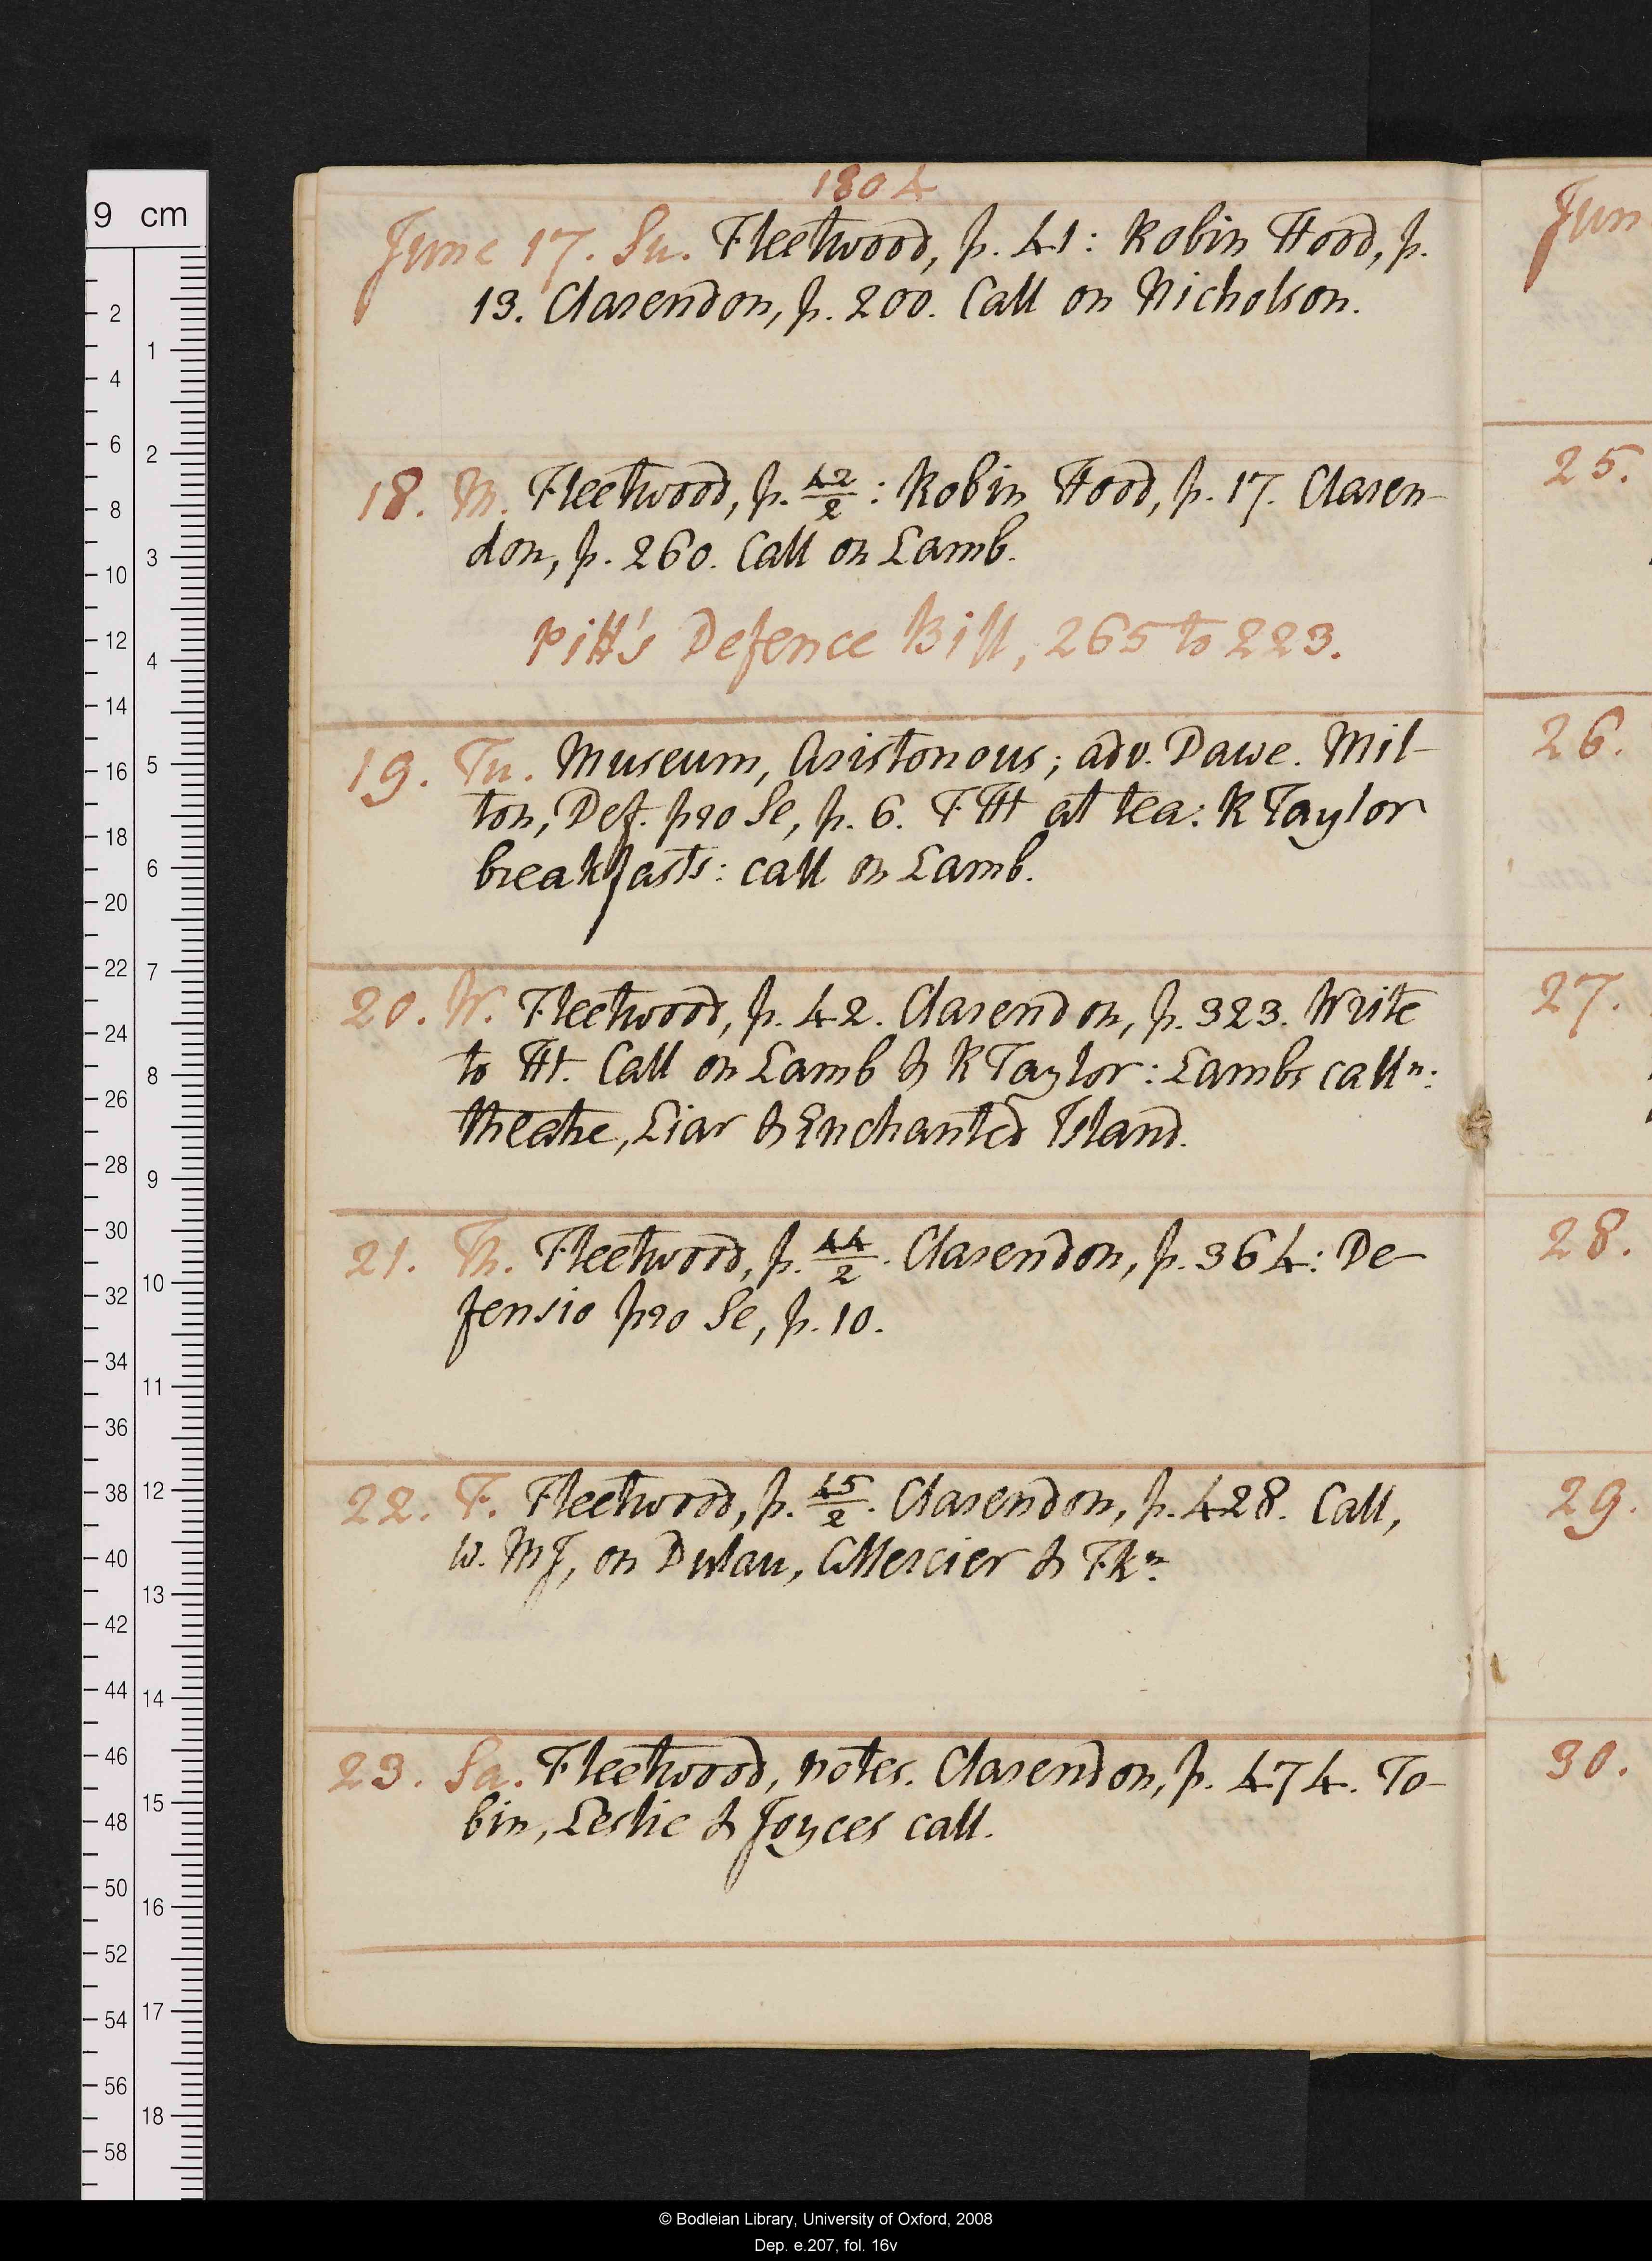 1804
June 17. Su. Fleetwood, p. 41: Robin Hood, p.
13. Clarendon, p. 200. Call on Nicholson.
18. M. Fleetwood, p. 42/2: Robin Hood, p. 17. Claren-
don, p. 260. Call on Lamb.
Pitt's Defence Bill, 265 to 223.
19. Tu. Museum, Aristonous; adv. Dawe. Mil-
ton, Def. pro Se, p. 6. T Ht at tea: R Taylor
breakfasts: call on Lamb.
20. W. Fleetwood, p. 42. Clarendon, p. 323. Write
to Ht. Call on Lamb & R Taylor: Lambs calln:
theatre, Liar & Enchanted Island.
21. Th. Fleetwood, p. 44/2. Clarendon, p. 364: De-
fensio pro Se, p. 10.
22. F. Fleetwood, p. 45/2. Clarendon, p. 428. Call,
w. MJ, on Dulau, CMercier & Fkn.
23. Sa. Fleetwood, notes. Clarendon, p. 474. To-
bin, Leslie & Joyces call.
Jun
25.
26.
27.
28.
29.
30.
9 cm
2
4
6
8
10
12
14
16
18
20
22
24
26
28
30
32
34
36
38
40
42
44
46
48
50
52
54
56
58
1
2
3
4
5
6
7
8
9
10
11
12
13
14
15
16
17
18
© Bodleian Library, University of Oxford, 2008
Dep. e.207, fol. 16v